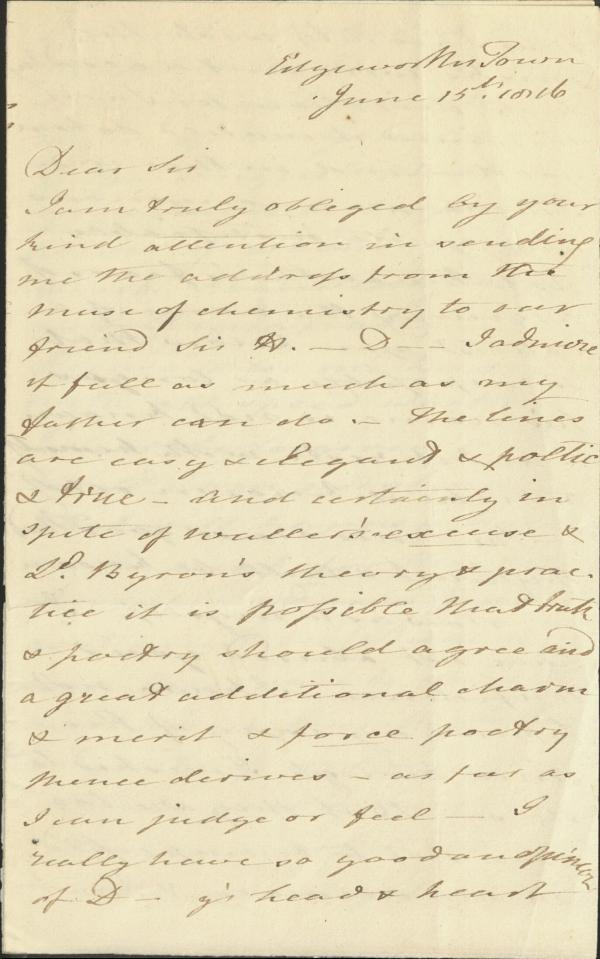 Edgeworths Town
June 15th. 1816
Dear Sir
I am truly obliged by your
kind attention in sending
me the address from the
muse of chemistry to our
friend Sir H. — D — I admire
it full as much as my
father can do. — The lines
are easy & elegant & poetic
& true — and certainly in
spite of Waller's excuse &
Ld. Byron's theory & prac-
tice it is possible that truth
& poetry should agree and
a great additional charm
& merit & force poetry
thence derives — as far as
I can judge or feel — I
really have so good an opinion
of D — y's head & heart